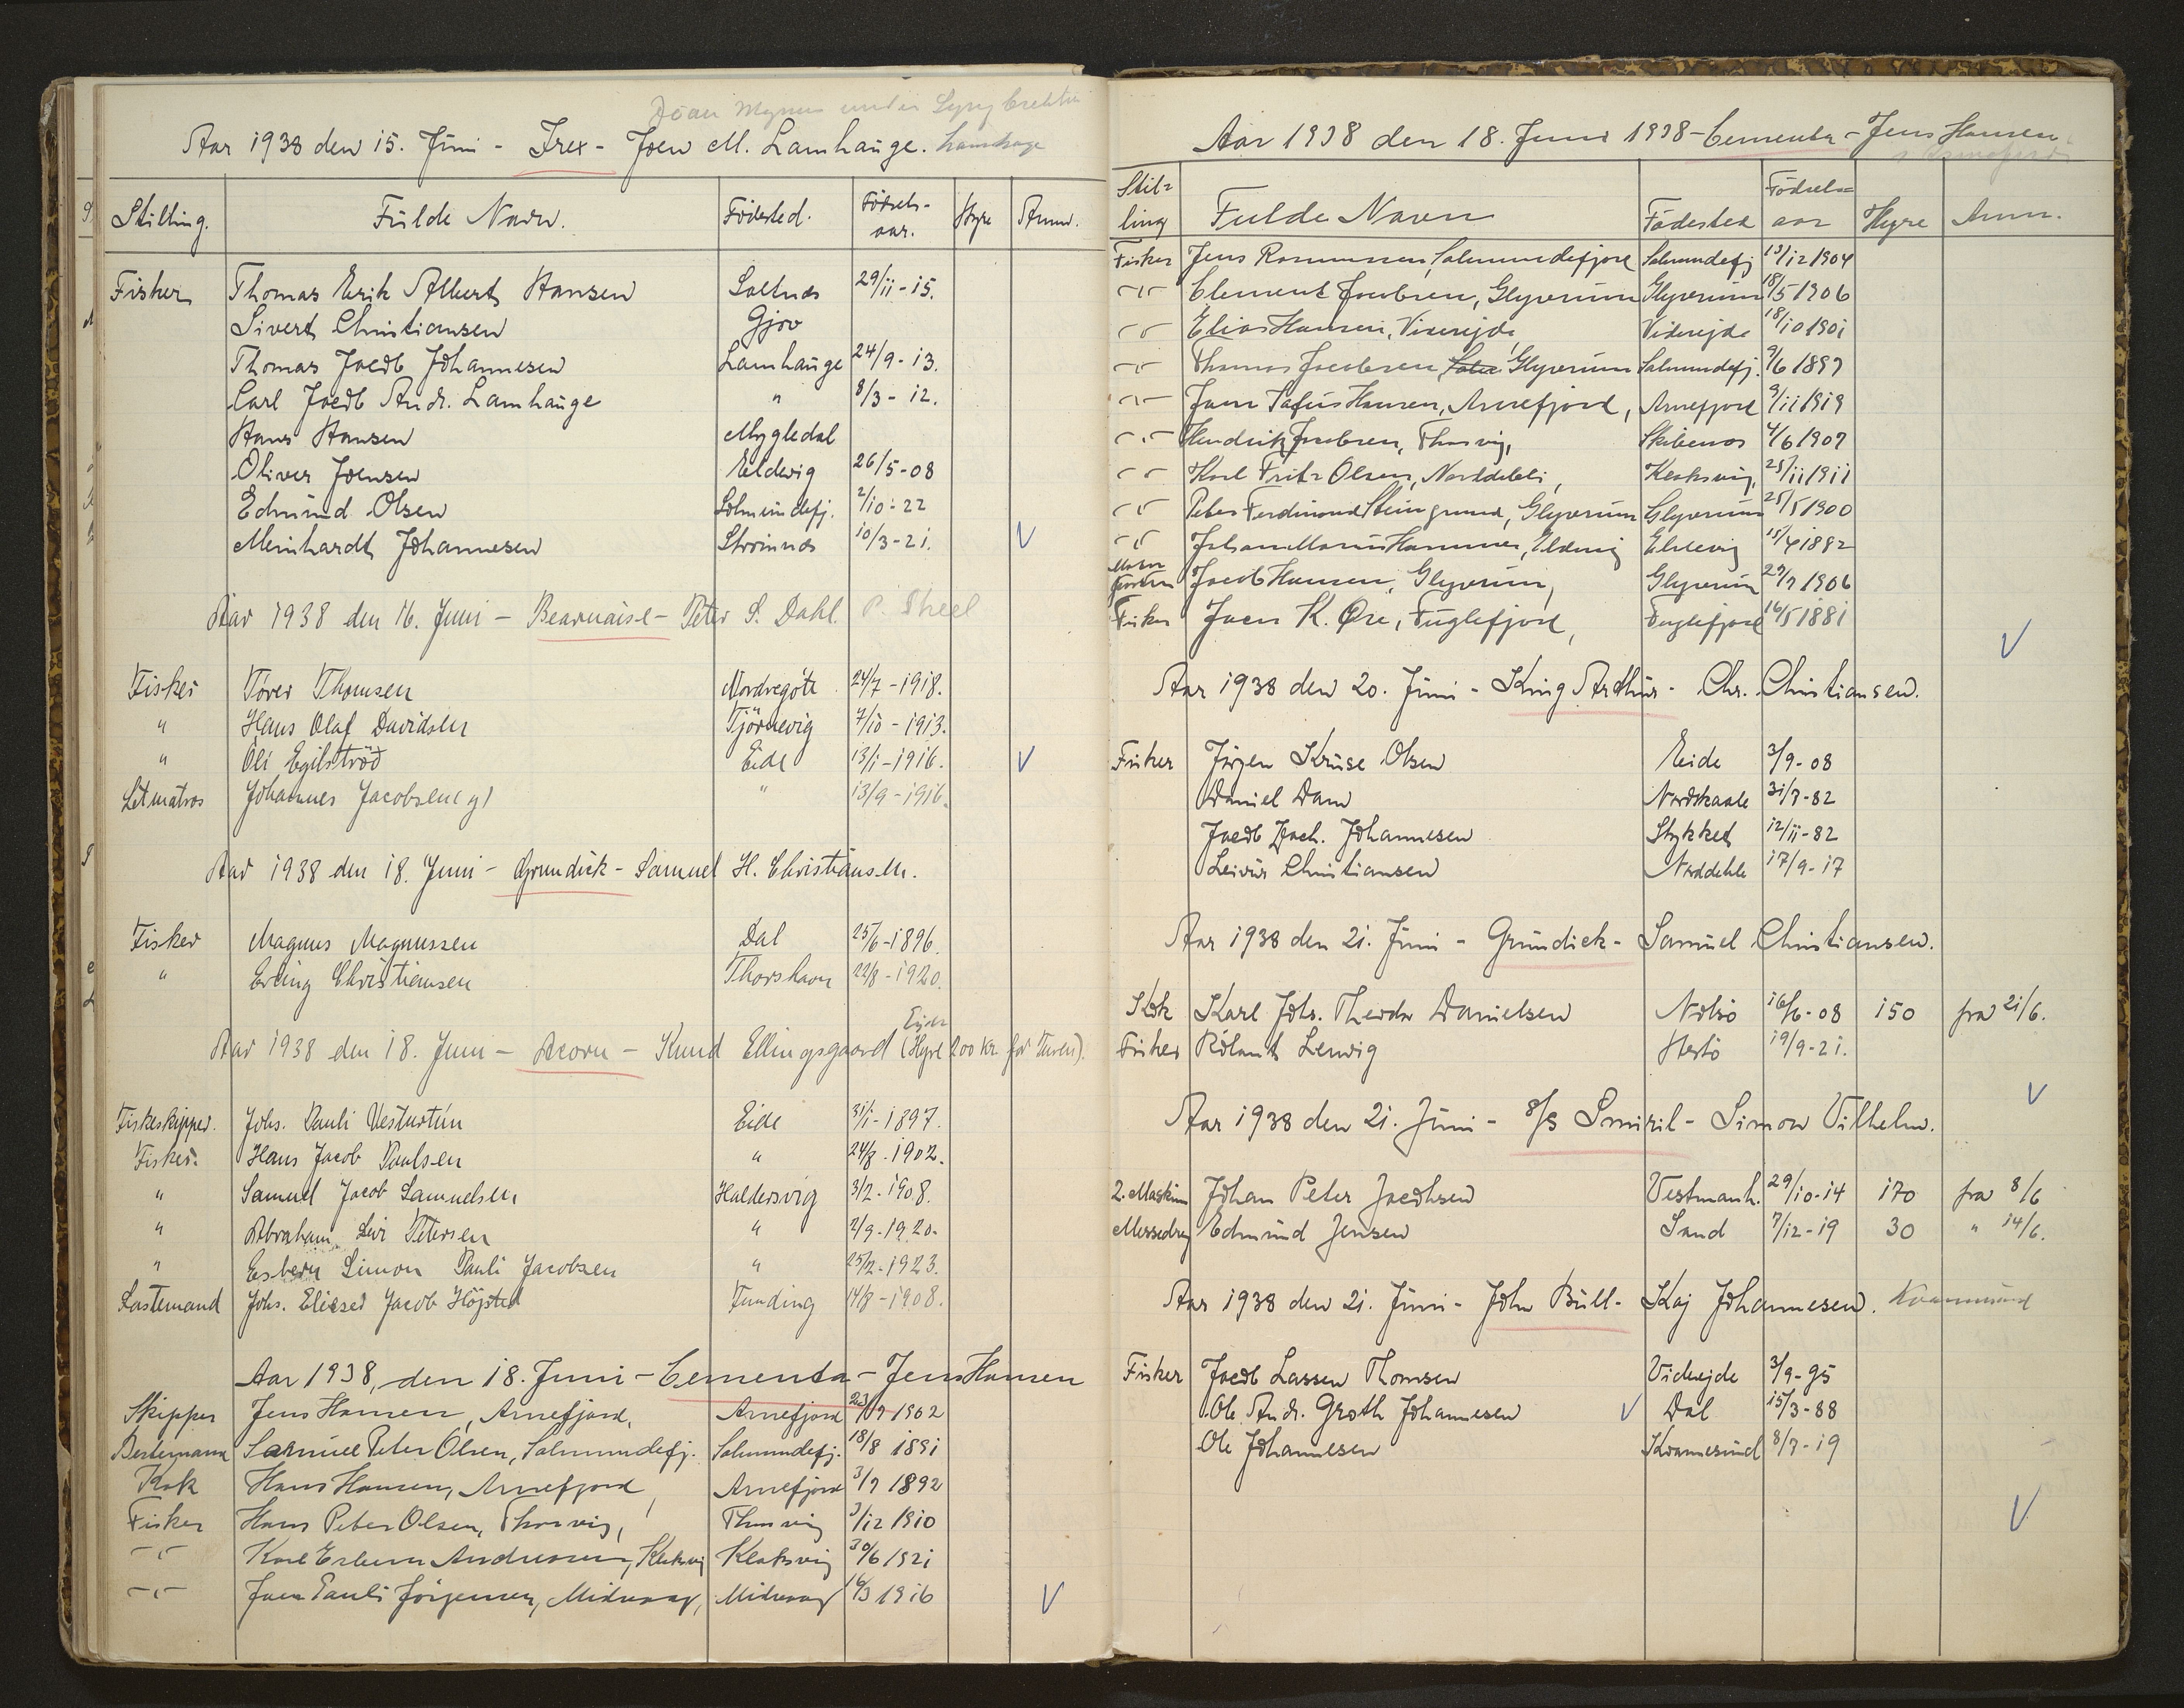 Aar 1938 den 15. Juni - Trex - Joen M. Lamhauge.
Stilling. Fulde Navn. Födested. Födsels-aar. Hyre Anm.
Fisker Thomas Erik Albert Hansen Saltnes 29/11-15.
Sivert Christiansen Gjov
Thomas Jacob Johannesen Lamhauge 24/9-13.
Carl Jacob Andr. Lamhauge " 8/3-12.
Hans Hansen Mygledal
Oliver Joensen Eldevig 26/5-08
Edmund Olsen Solmundefj. 2/10-22
Meinhardt Johannesen Strömnes 10/3-21.
Aar 1938 den 16. Juni - Bearnaise - Peter S. Dahl.
Fisker Tórer Thomsen Nordregöte 24/7-1918.
" Hans Olaf Davidsen Tjörnevig 7/10-1913.
" Óli Egilströd Eide 13/1-1916.
Letmatros Johannes Jacobsen " 13/9-1916.
Aar 1938 den 18. Juni - Grundick - Samuel H. Christiansen.
Fisker Magnus Magnussen Dal 25/6-1896.
" Erling Christiansen Thorshavn 22/8-1920.
Aar 1938 den 18. Juni - Acorn - Knud Ellingsgaard (Hyre 200 kr. for Turen).
Fiskeskipper. Johs. Pauli Vesturtún Eide 31/1-1897.
Fisker. Hans Jacob Poulsen " 24/8-1902.
" Samuel Jacob Samuelsen Haldersvig 3/2-1908.
" Abraham Levi Petersen " 2/9-1920.
" Esbern Simon Pauli Jacobsen " 25/2-1923.
Lastemand Johs. Elieser Jacob Höjsted Funding 14/8-1908.
Aar 1938, den 18. Juni - Cementa - Jens Hansen
Skipper Jens Hansen, Arnefjord, Arnefjord 1902
Bestemand Samuel Peter Olsen, Salmundefj. Salmundefj. 18/8 1891
Kok Hans Hansen, Arnefjord, Arnefjord 3/7 1892
Fisker Hans Peter Olsen, Thorvig, Thorvig 3/12 1910
-"- Karl Esbern Andreasen, Klaksvig Klaksvig 30/6 1921
-"- Joen Pauli Jörgensen, Midvaag, Midvaag 16/3 1916
Aar 1938 den 18. Juni 1938 - Cementa - Jens Hansen
Stilling Fulde Navn Födested Födselsaar Hyre Anm.
Fisker Jens Rasmussen, Salmundefjord Salmundefj 13/12 1904
-"- Clement Jacobsen, Glyverum Glyverum 18/5 1906
-"- Elias Hansen, Viderejde, Viderejde 18/10 1901
-"- Thomas Jacobsen, Glyverum Salmundefj. 9/6 1897
-"- Joen Hansen, Arnefjord, Arnefjord 9/11 1919
-"- Hendrik Jacobsen, Thorvig, Skibenes 4/6 1907
-"- Karl Fritz Olsen, Norddeble, Klaksvig, 25/11 1911
-"- Peter Ferdinand Steingrund, Glyverum Glyverum 25/5 1900
-"- Johan Marius Hammer, Eldevig Eldevig 15/4 1882
Jacob Hansen, Glyverum, Glyverum 29/7 1906
Fisker Joen K. Øre, Fuglefjord, Fuglefjord 16/5 1881
Aar 1938 den 20. Juni - King Arthur - Chr. Christiansen.
Fisker Jörgen Kruse Olsen Eide 3/9-08
Daniel Dam Nordskaale 31/7-82
Jacob Zach. Johannesen Stykket 12/11-82
Leivur Christiansen Norddeble 17/9-17
Aar 1938 den 21. Juni - Grundick - Samuel Christiansen.
Kok Karl Johs. Theodor Danielsen Nolsö 16/6-08 150 fra 21/6.
Fisker Róland Lervig Hestö 19/9-21.
Aar 1938 den 21. Juni - S/S Smiril - Simon Vilhelm.
2. Maskinm Johan Peter Jacobsen Vestmanh. 29/10-14 170 fra 8/6
Messedreng Edmund Jensen Sand 7/12-19 30 " 14/6.
Aar 1938 den 21. Juni - John Bull - Kaj Johannesen. Kvannesund
Fisker Jacob Lassen Thomsen Viderejde 3/9-95
Ole Andr. Groth Johannesen Dal 15/3-88
Ole Johannesen Kvannesund 8/7-19